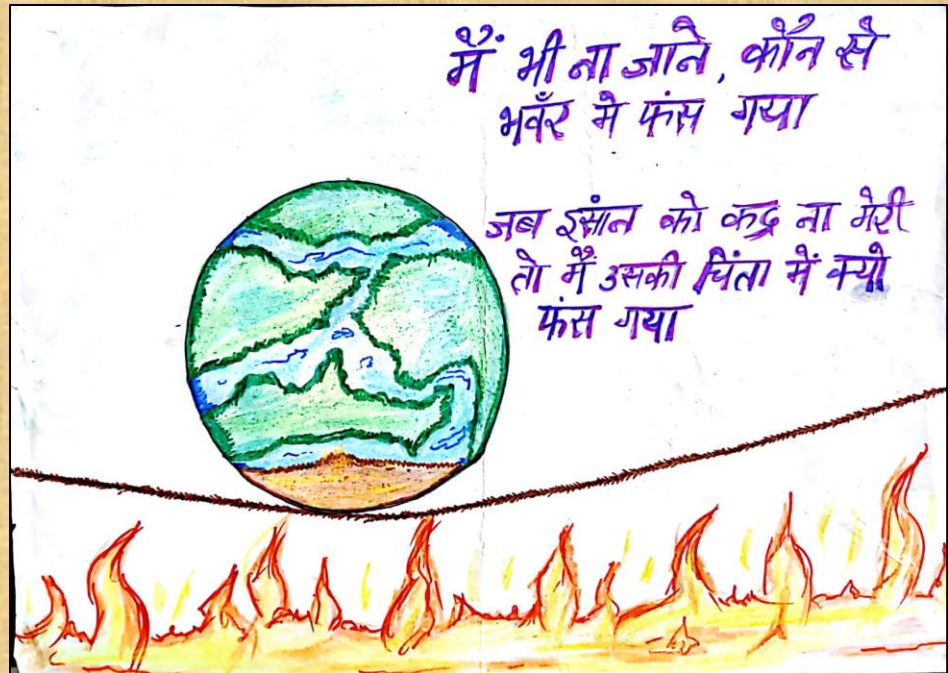 मैं भी ना जाने, कौन से
भवँर मे फंस गया
जब इंसान को कद्र ना मेरी
तो मैं उसकी चिंता में क्यो
फंस गया